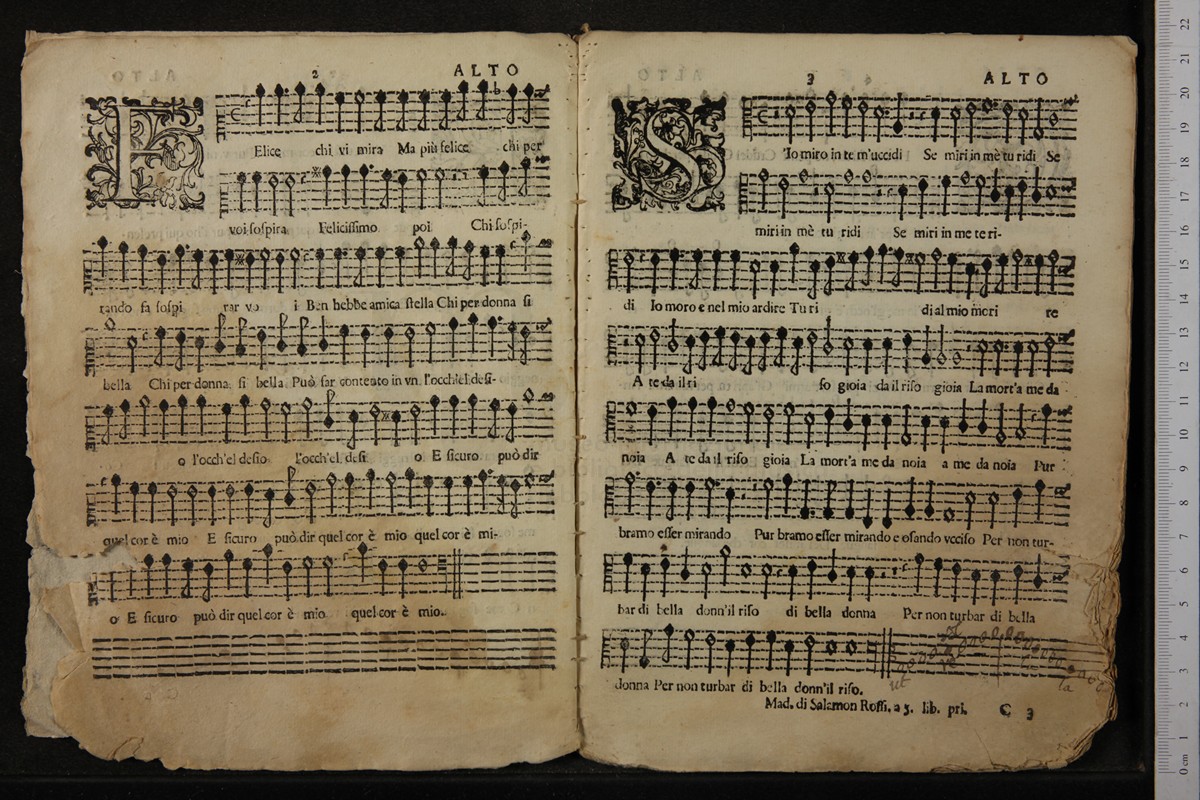 2 ALTO
FElice chi vi mira Ma più felice chi per
voi sospira Felicissimo poi Chi sospi-
rando fa sospi rar vo i Ben hebbe amica stella Chi per donna si
bella Chi per donna si bella Può far contento in vn l'occh'el desi-
o l'occh'el desio l'occh'el desi o. E sicuro può dir
quel cor è mio E sicuro può dir quel cor è mio quel cor è mi-
o E sicuro può dir quel cor è mio quel cor è mio.
3 ALTO
S'Io miro in te m'uccidi Se miri in mè tu ridi Se
miri in mè tu ridi Se miri in me te ri-
di Io moro e nel mio ardire Tu ri di al mio mori re
A te da il ri so gioia da il riso gioia La mort'a me da
noia A te da il riso gioia La mort'a me da noia a me da noia Pur
bramo esser mirando Pur bramo esser mirando e osando vcciso Per non tur-
bar di bella donn'il riso di bella donna Per non turbar di bella
donna Per non turbar di bella donn'il riso.
ut la
Mad. di Salamon Rossi, a 5. lib. pri. C 3
22
21
20
19
18
17
16
15
14
13
12
11
10
9
8
7
6
5
4
3
2
1
0 cm